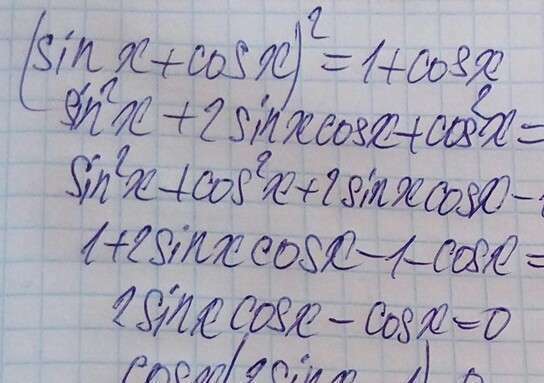 (sin x + cos x)² = 1 + cos x
sin²x + 2 sin x cos x + cos²x =
sin²x + cos²x + 2 sin x cos x -
1 + 2 sin x cos x - 1 - cos x =
2 sin x cos x - cos x = 0
cos x (2 sin x